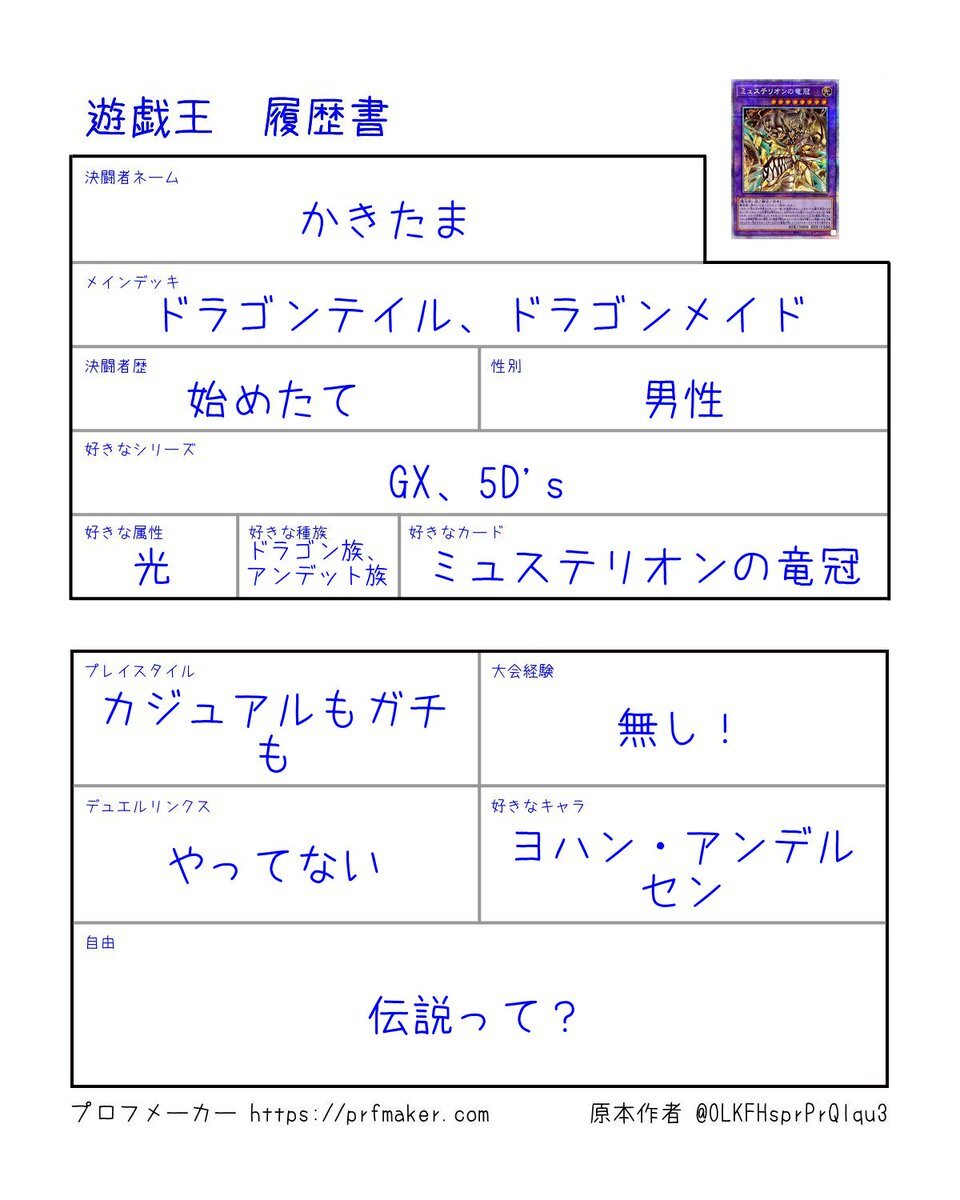 遊戯王　履歴書
ミュステリオンの竜冠
決闘者ネーム
かきたま
メインデッキ
ドラゴンテイル、ドラゴンメイド
決闘者歴
始めたて
性別
男性
好きなシリーズ
GX、5D's
好きな属性
光
好きな種族
ドラゴン族、
アンデット族
好きなカード
ミュステリオンの竜冠
プレイスタイル
カジュアルもガチ
も
大会経験
無し！
デュエルリンクス
やってない
好きなキャラ
ヨハン・アンデル
セン
自由
伝説って？
プロフメーカー https://prfmaker.com
原本作者 @OLKFHsprPrQlqu3